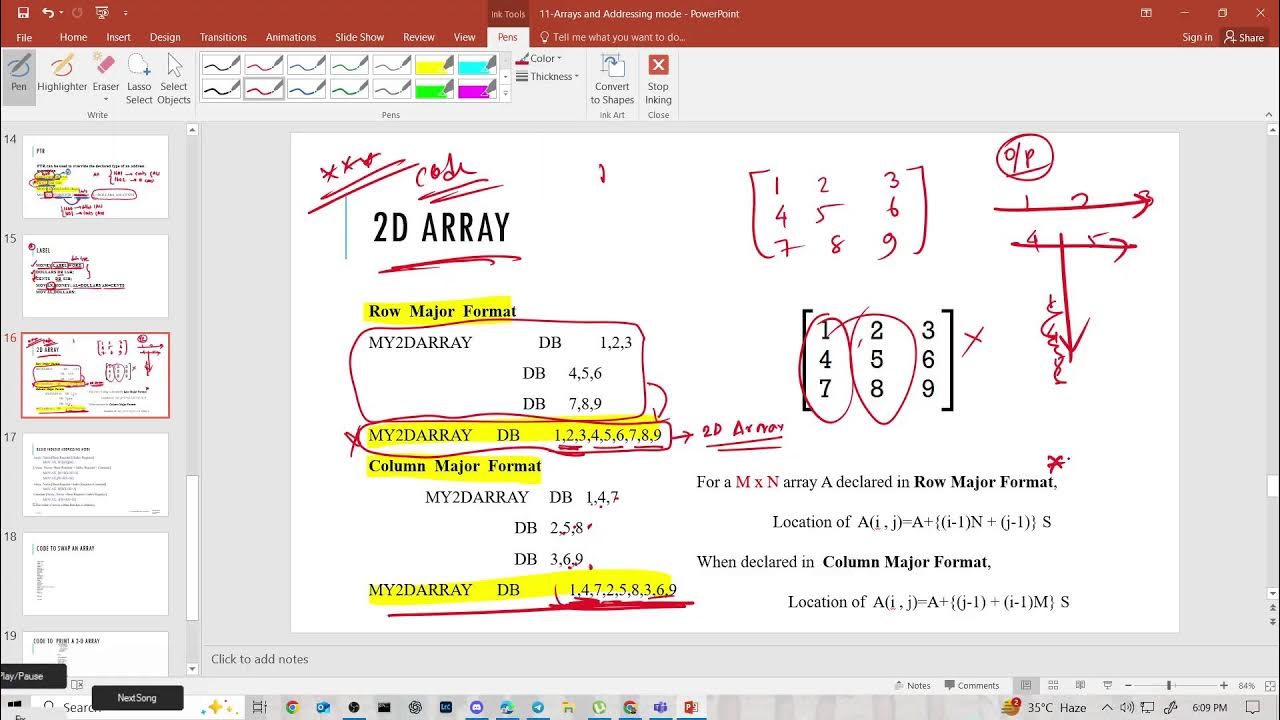 Ink Tools
11-Arrays and Addressing mode - PowerPoint
File Home Insert Design Transitions Animations Slide Show Review View Pens Tell me what you want to do...
Sign in Share
Pen Highlighter Eraser Lasso Select Select Objects
Color
Thickness
Convert to Shapes
Stop Inking
Write Pens Ink Art Close
14
PTR
PTR can be used to override the declared type of an address
15
LABEL
16
2D ARRAY
17
BASED INDEXED ADDRESSING MODE
18
CODE TO SWAP AN ARRAY
19
CODE TO PRINT A 2-D ARRAY
code
2D ARRAY
1 2 3
4 5 6
7 8 9
O/P
1 2 3
4 5
Row Major Format
MY2DARRAY DB 1,2,3
DB 4,5,6
DB 7,8,9
MY2DARRAY DB 1,2,3,4,5,6,7,8,9
2D Array
Column Major Format
MY2DARRAY DB 1,4,7
DB 2,5,8
DB 3,6,9
MY2DARRAY DB 1,4,7,2,5,8,3,6,9
1 2 3
4 5 6
7 8 9
For a M x N array A declared in Row Major Format,
Location of A(i , j)=A+{(i-1)N + (j-1)} S
When declared in Column Major Format,
Location of A(i , j)=A+{(j-1) + (i-1)M} S
Click to add notes
Play/Pause
NextSong
Notes Comments 84%
Search
35°C Haze
6:09 PM